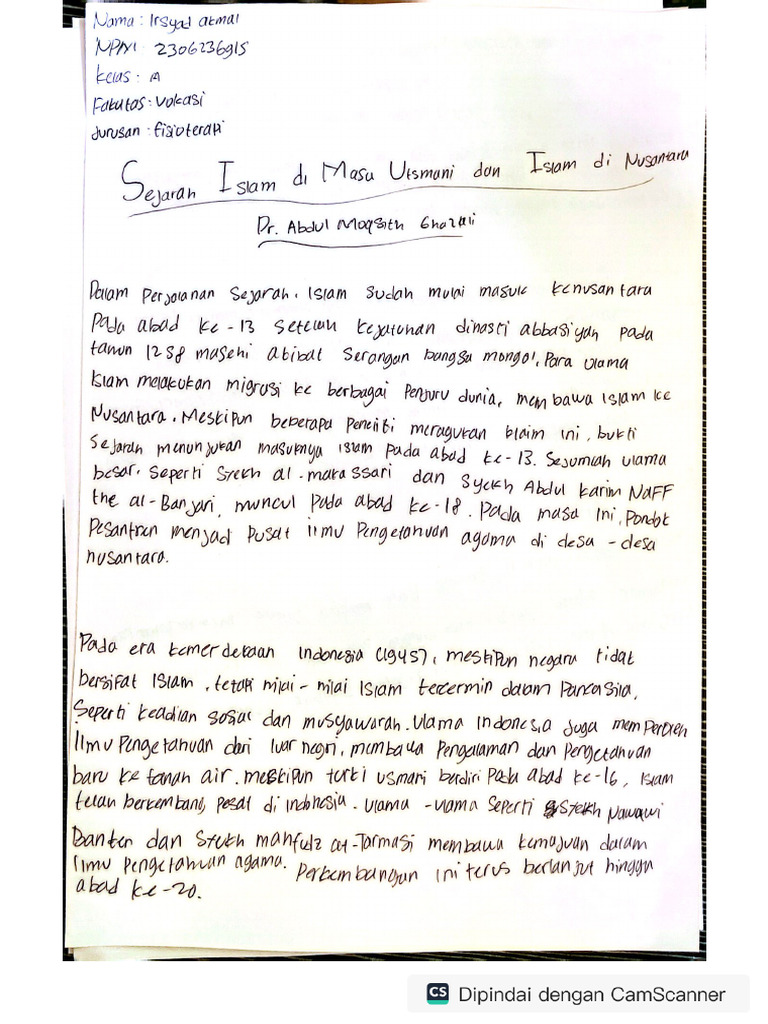 Nama : Irsyad akmal
NPM : 2306236915
Kelas : A
Fakultas : Vokasi
Jurusan : fisioterapi
Sejarah Islam di Masa Utsmani dan Islam di Nusantara
Dr. Abdul Moqsith Ghazali
Dalam Perjalanan Sejarah, Islam sudah mulai masuk kenusantara
Pada abad ke-13 setelah kejatuhan dinasti abbasiyah pada
tahun 1258 masehi akibat serangan bangsa mongol, Para ulama
Islam melakukan migrasi ke berbagai Penjuru dunia, membawa Islam ke
Nusantara. Meskipun beberapa Peneliti meragukan klaim ini, bukti
Sejarah menunjukan masuknya Islam pada abad ke-13. Sejumlah ulama
besar, seperti Syekh al-makassari dan Syekh Abdul Karim NaFF
the al-Banjari, muncul pada abad ke-18. Pada masa ini, Pondok
Pesantren menjadi Pusat ilmu Pengetahuan agama di desa-desa
nusantara.
Pada era kemerdekaan Indonesia (1945), meskipun negara tidak
bersifat Islam, tetapi nilai-nilai Islam tercermin dalam Pancasila,
Seperti keadian sosial dan musyawarah. Ulama Indonesia juga memperoleh
Ilmu Pengetahuan dari luar negri, membawa Pengalaman dan Pengetahuan
baru ke tanah air. meskipun turki usmani berdiri pada abad ke-16, Islam
telah berkembang pesat di indonesia. ulama-ulama seperti Syekh Nawawi
Banten dan Syekh mahfudz at-Tarmasi membawa kemajuan dalam
Ilmu Pengetahuan agama. Perkembangan ini terus berlanjut hingga
abad ke-20.
CS Dipindai dengan CamScanner